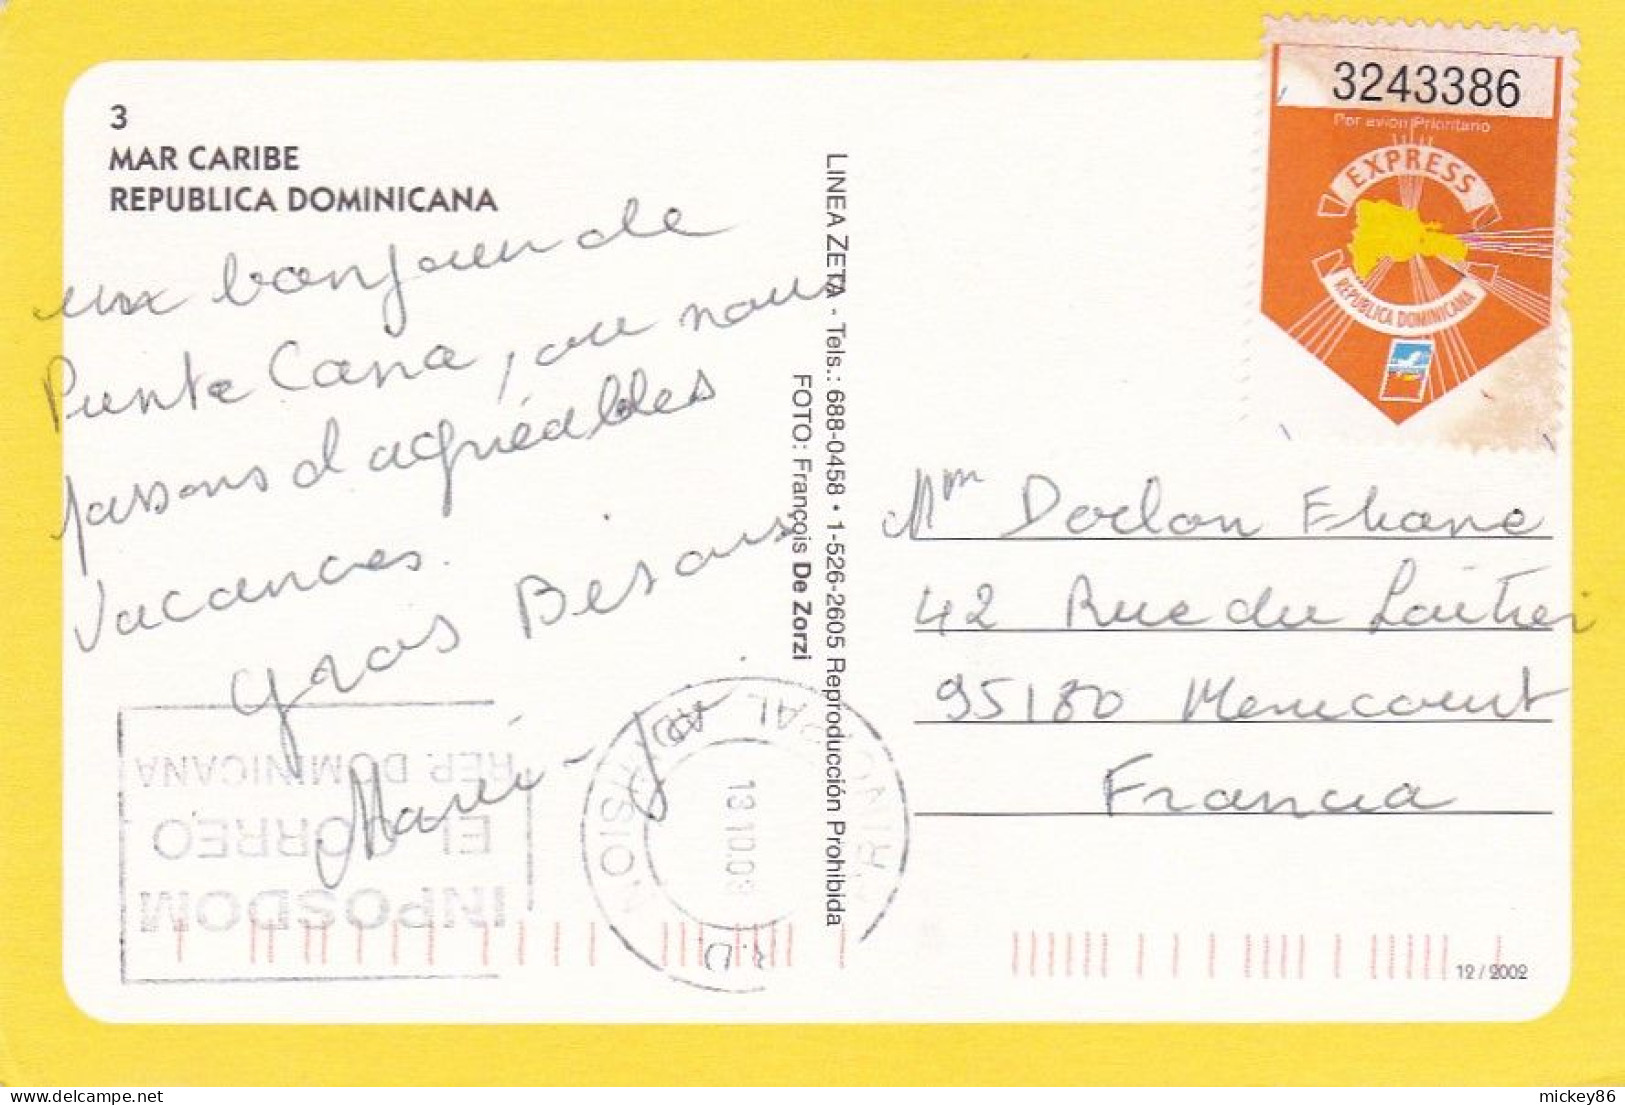 3
MAR CARIBE
REPUBLICA DOMINICANA
un bonjour de
Punta Cana, ou nous
passons d'agréables
vacances.
Gros Bisous
Marie-Jo
INPOSDOM
EL CORREO
REP. DOMINICANA
R.D.
LINEA ZETA - Tels.: 688-0458 • 1-526-2605 Reproducción Prohibida
FOTO: François De Zorzi
3243386
Por avion Prioritario
EXPRESS
REPUBLICA DOMINICANA
Mm Dorlon
42 Rue du
95180 Menucourt
France
12 / 2002
mickey86